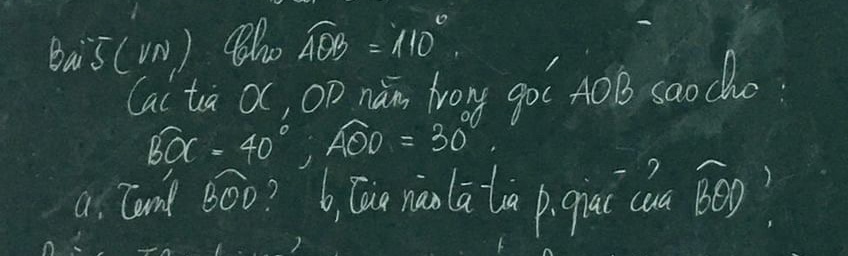 Bài 5 (VN) Cho AOB = 110°.
Các tia OC, OD nằm trong góc AOB sao cho :
BOC = 40° ; AOD = 30°.
a. Tính BOD? b, Tia nào là tia p. giác của BOD?